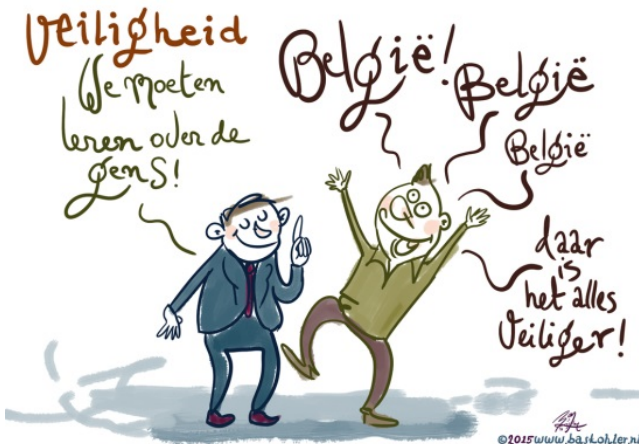 Veiligheid
We moeten
leren over de
gens!
België!
België
België
daar
is
het alles
Veiliger!
©2015 www.baskohler.nl